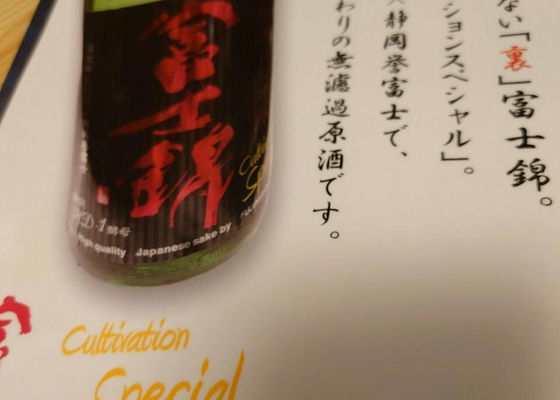 ない「裏」富士錦。
ションスペシャル」。
静岡誉富士で、
わりの無濾過原酒です。
富士錦
HD-1酵母
High quality Japanese sake by
Cultivation
Special